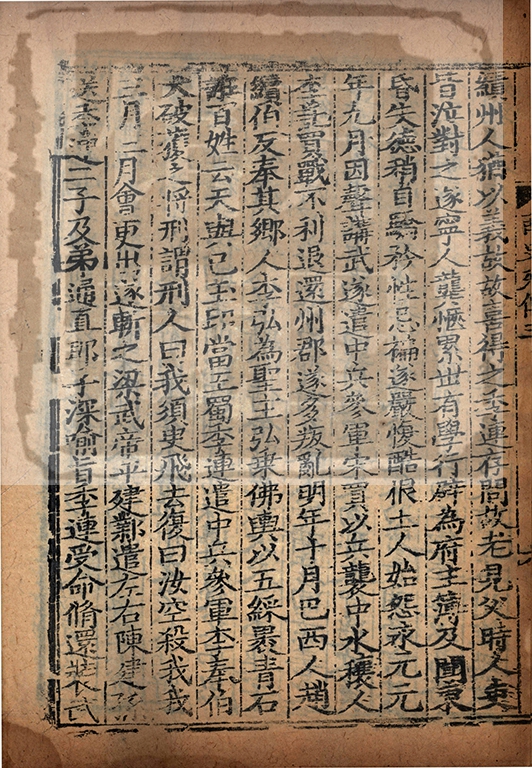 續州人猶以義故故喜得之季連存問故老見父時人吏
皆泣對之遂寧人龔愜累世有學行辟為府主簿及聞東
昏失德稍自驕矜性忌褊遂嚴愎酷佷土人始怨永元元
年九月因聲講武遂遣中兵參軍宋買以兵襲中水穰人
李託買戰不利退還州郡遂多叛亂明年十月巴西人趙
續伯反奉其鄉人李弘為聖主弘乗佛輿以五綵裹青石
誑百姓云天與已玉印當王蜀季連遣中兵參軍李奉伯
大破獲之將刑謂刑人曰我須臾飛去復曰汝空殺我我
三月二月會更出遂斬之梁武帝平建鄴遣左右陳建孫
送季連二子及弟通直郎子深喻旨季連受命脩還裝武